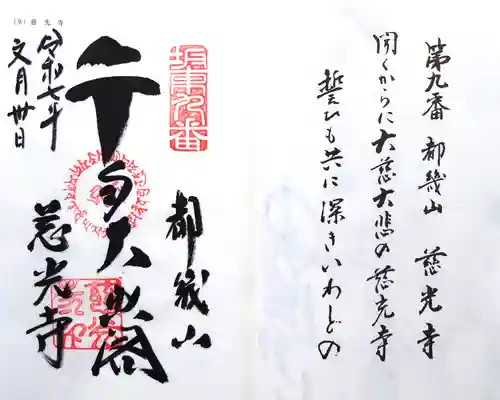 第九番 都幾山 慈光寺
聞くからに大慈大悲の慈光寺
誓ひも共に深きいわどの
(9) 慈光寺
坂東九番
都幾山
千手大悲閣
慈光寺
令和七年
文月卅日